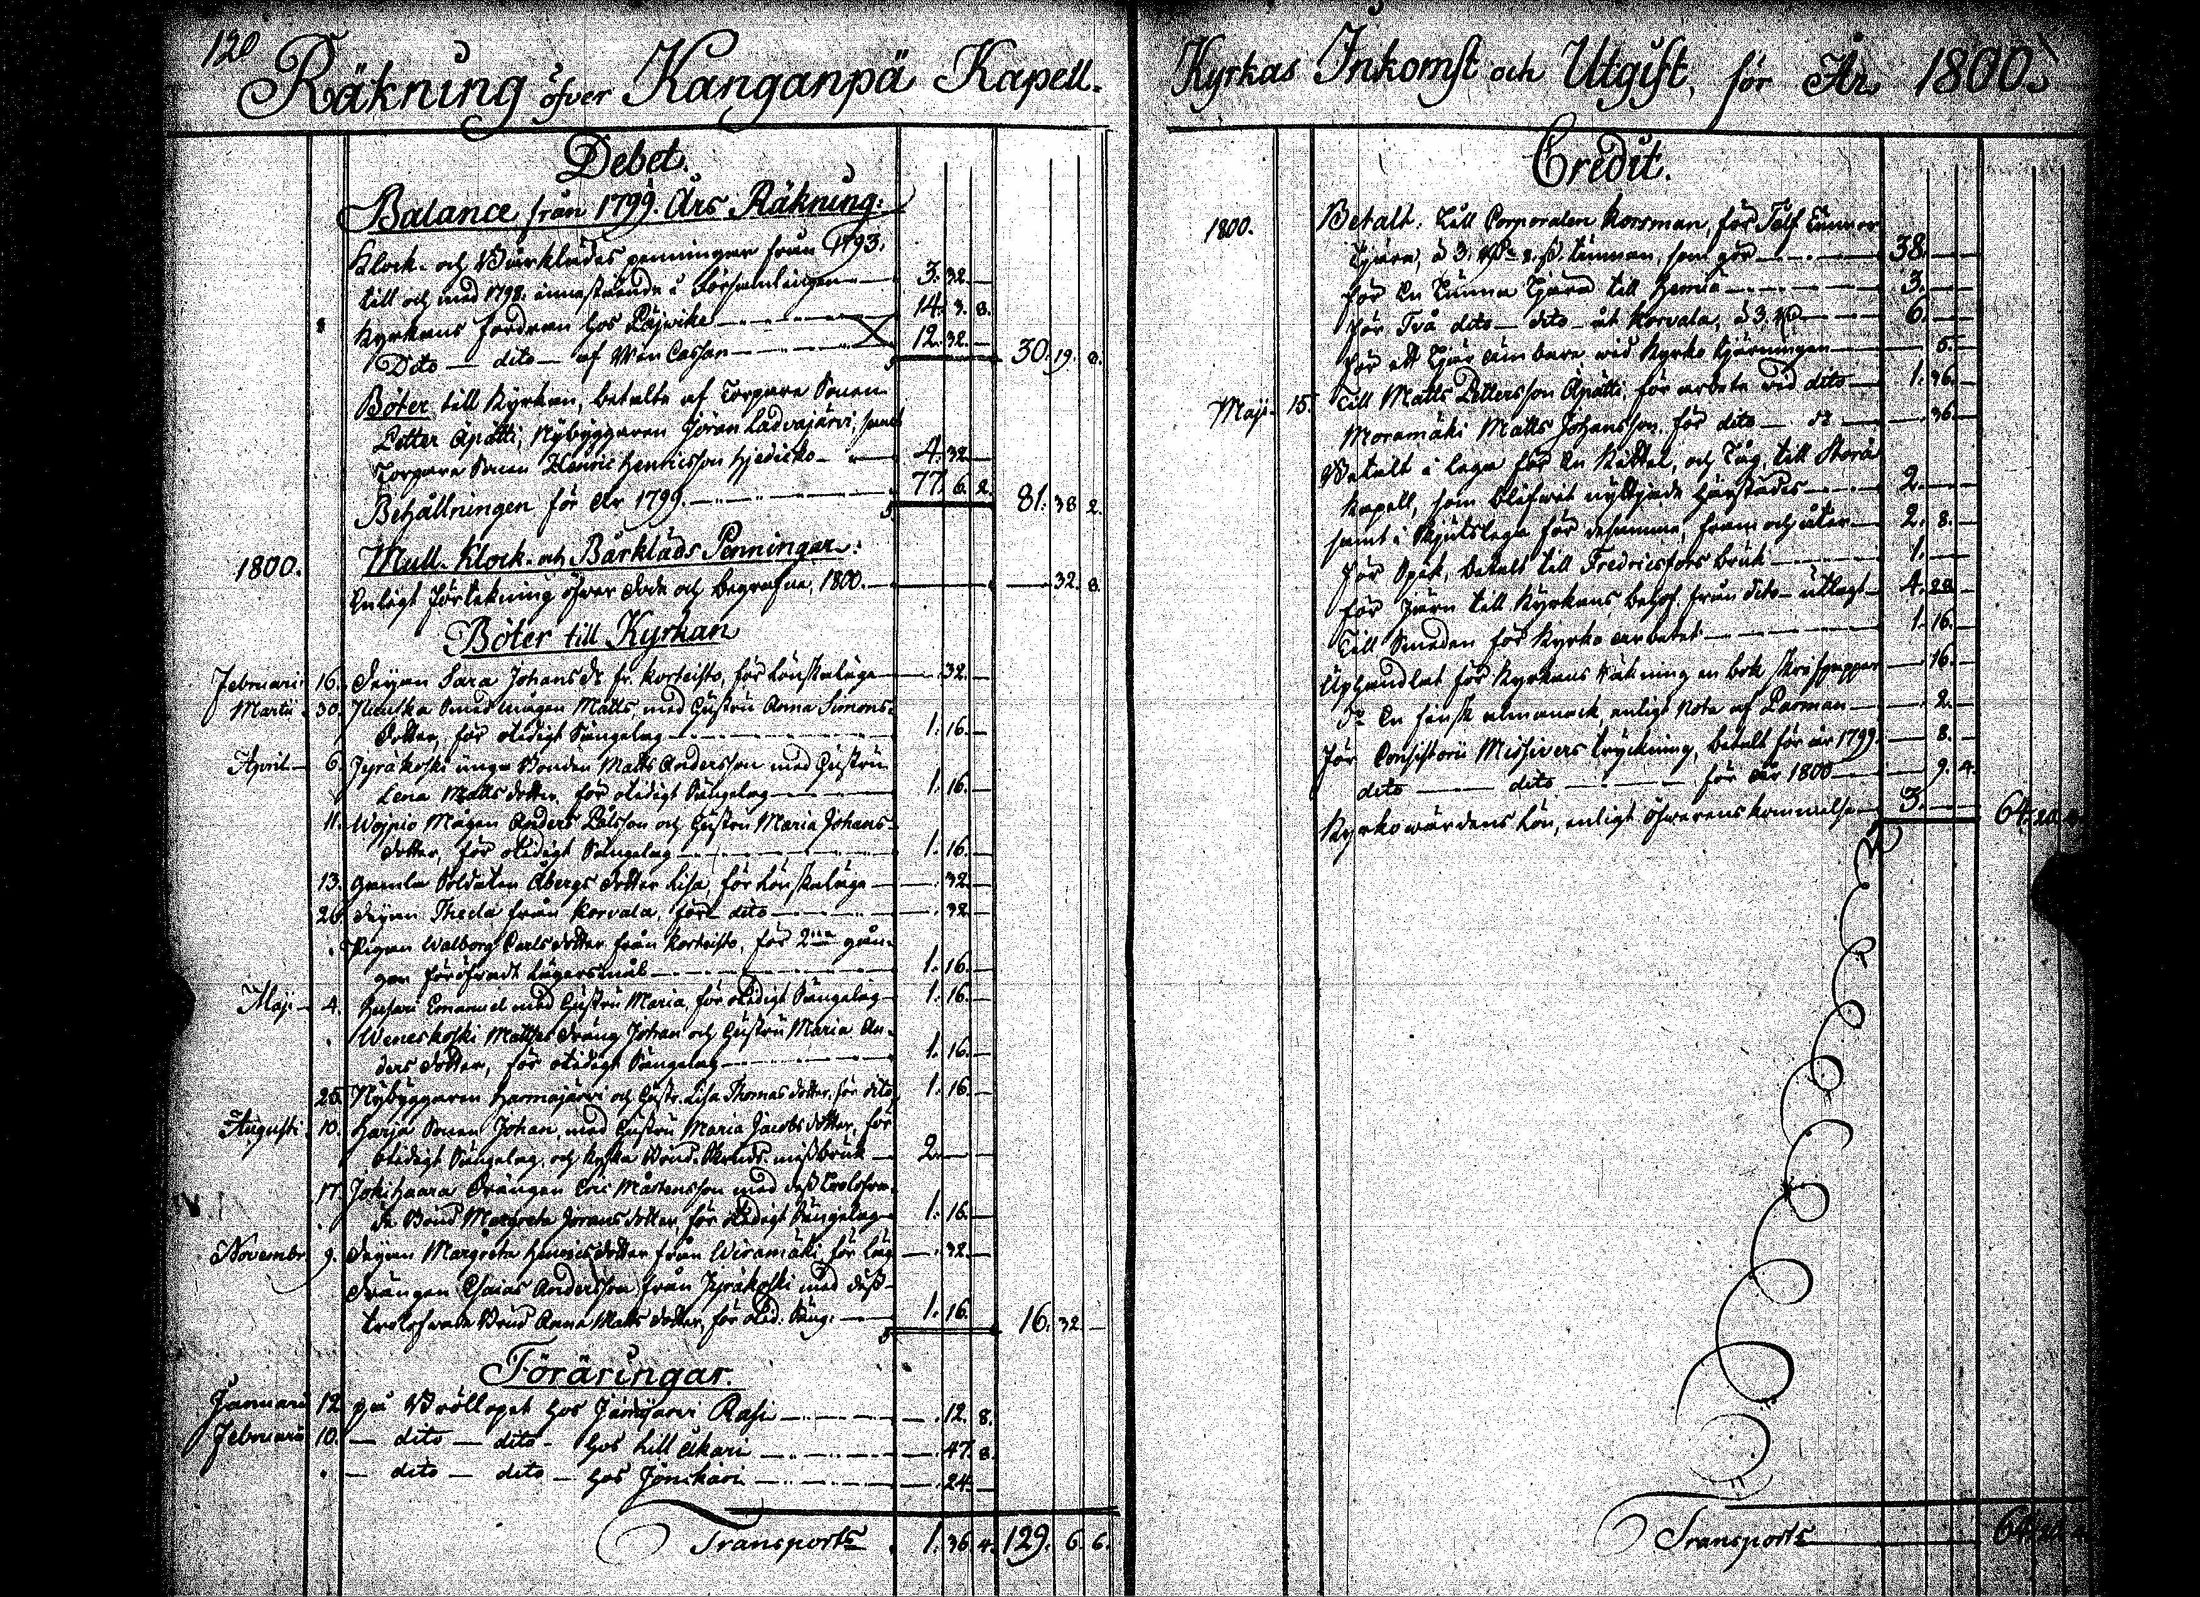 120
Räkning öfver Kanganpä Kapell.
Debet.
Balance från 1799. Års Räkning:
Klock- och Bårklädes penningar från 1793.
till och med 1798. innestående i Församlingen 3. 32.
Kyrkans fordran hos Läjwike 14. 3. 8.
Dito — dito — af Casson 12. 32. — 30. 19. 8.
Böter till Kyrkan, betalte af Torpare Sonen
Petter Äpätti, Nybyggaren Jöran Ladvajärvi, samt
Torpare Sonen Henric Henricsson 4. 32.
Behållningen för År 1799. 77. 6. 2. 81. 38. 2.
1800. Mull- Klock- och Bårkläds Penningar:
Enligt förtekning öfwer döde och begrafne, 1800. — 32. 8.
Böter till Kyrkan
Februari 16. Pigan Sara Johans dr fr. för Lönskaläge 32.
Martii 30. Smed mågen Matts, med Hustru Anna Simons-
dotter, för otidigt Sängelag 1. 16.
April 6. Jyräkoski unga Bonden Matts Andersson med Hustru
Lena Matts dotter, för otidigt Sängelag 1. 16.
11. Mågen Anders Pålsson och Hustru Maria Johans-
dotter, för otidigt Sängelag 1. 16.
13. gamla Soldaten Åbergs dotter Lisa, för Lönskaläge 32.
26. Pigan Theda från Korvala, för dito 32.
Pigan Walborg Carlsdotter från, för 2dra gån-
gen föröfvadt Lägersmål 1. 16.
Maji 4. Emanuel med Hustru Maria, för otidigt Sängelag 1. 16.
Weneskoski Mattses dräng Johan och Hustru Maria An-
ders dotter, för otidigt Sängelag 1. 16.
25. Nybyggaren Harmajärvi och Hustr. Lisa Thomas dotter, för dito 1. 16.
Augusti 10. Harja Sonen Johan, med Hustru Maria Jacobs dotter, för
otidigt Sängelag, och missbruk 2.
17. Jokihaara Drängen Eric Mårtensson med dess trolofva-
de Brud Margreta Jörans dotter, för otidigt Sängelag 1. 16.
Novembr 9. Pigan Margreta Henrics dotter från Wiramäki för Läg 32.
Drängen Esaias Andersson från Jyräkoski med dess
trolofvade Brud Anna Matts dotter, för otid. Säng. 1. 16. 16. 32.
Föräringar.
Januarii 12. på Bröllopet hos Jämijärvi Rasi 12. 8.
Februarii 10. — dito — dito — hos Lill Ukari 47. 8.
— dito — dito — hos Jönikäri 24.
Transport 1. 36. 4. 129. 6. 6.
Kyrkas Inkomst och Utgift, för År 1800.
Credit.
1800. Betalt. till Corporalen Korsman, för Tolf Tunnor
Tjära, à 3. Rdr 8. s. tunnan, som gör 38.
för En Tunna Tjära till 3.
för Två dito — dito — åt Korvala, à 3. Rdr 6.
för ett wid Kyrko tjärningen 5.
Maji 15. Till Matts Pettersson Äpätti, för arbete vid dito 1. 36.
Moramäki Matts Johansson för dito — dr 36.
Betalt i lega för En Kittel, och Tåg, till Storå
Kapell, som blifwit nyttjade härstädes 2.
samt i Skjutslega för desamma, fram och åter 2. 8.
för Spik, betalt till Fredricsfors bruk 1.
för Jern till Kyrkans behof från dito uttagt 4. 28.
Till Smeden för Kyrko arbetet 1. 16.
Uphandlat för Kyrkans Räkning en bok skrifpapper 16.
dr En finsk almanack, enligt Nota af 2.
för Consistorii Missivers tryckning, betalt för år 1799. 8.
dito — dito — för år 1800 9. 4.
Kyrkowärdens Lön, enligt öfwerenskommelse 3. 64.
Transport 64.